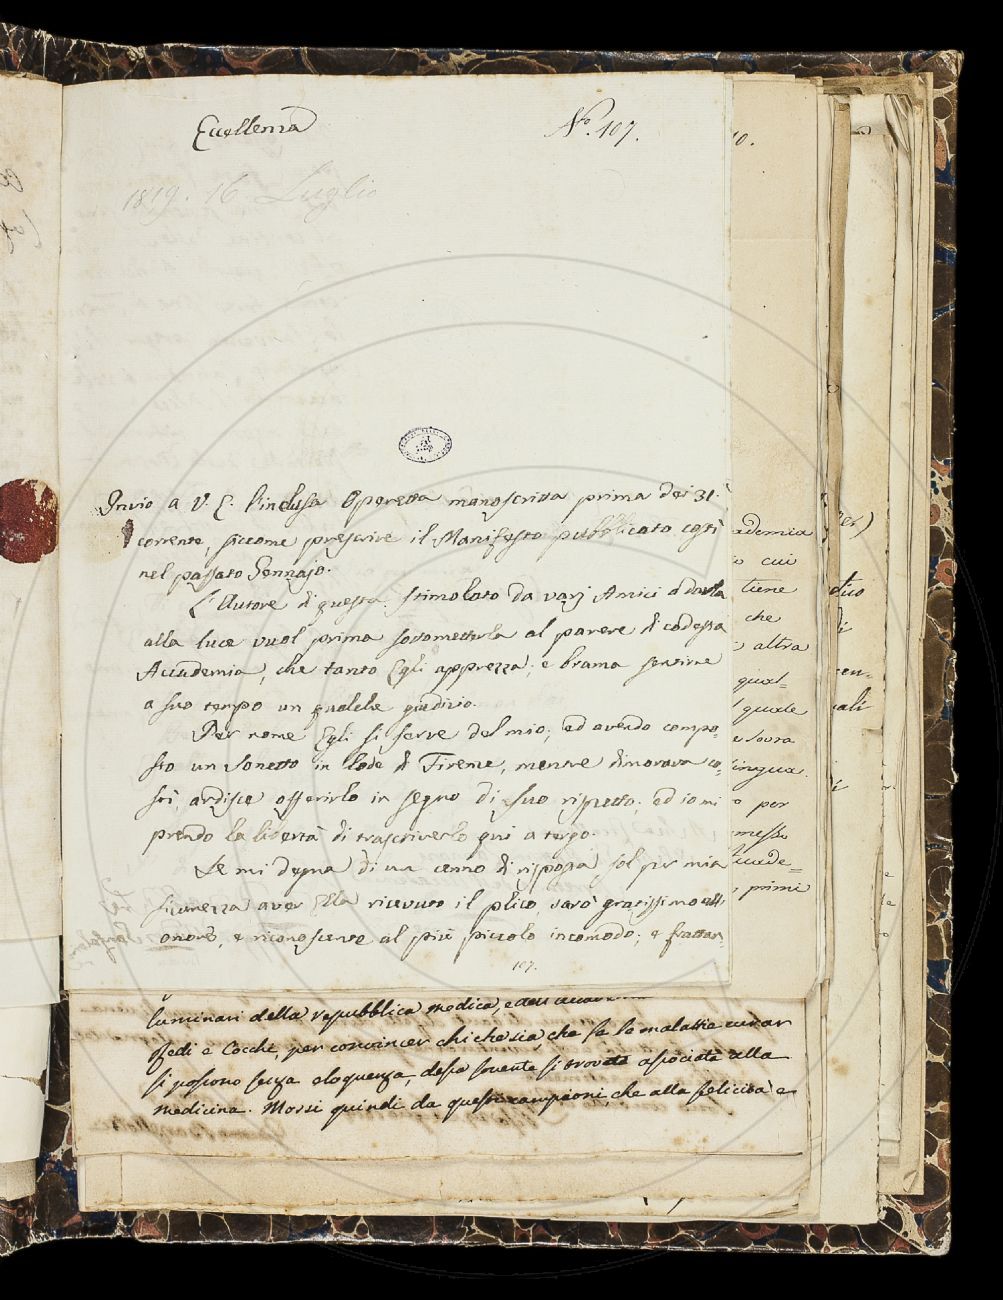 Eccellenza
N.o 107.
1819. 16 Luglio
Invio a V. E. l'inclusa Operetta manoscritta prima dei 31.
corrente, siccome prescrive il Manifesto pubblicato costì
nel passato Gennajo.
L'Autore di questa stimolato da varj Amici a darla
alla luce vuol prima sottometterla al parere di codesta
Accademia, che tanto Egli apprezza; e brama sentirne
a suo tempo un qualche giudizio.
Per nome Egli si serve del mio; ed avendo compo-
sto un Sonetto in lode di Firenze, mentre dimorava co-
stì, ardisce offerirlo in segno di suo rispetto; ed io mi
prendo la libertà di trascriverlo qui a tergo.
Se mi degna di un cenno di risposta, sol per mia
sicurezza aver Ella ricevuto il plico, sarò gratissimo all'
onore, e riconoscente al più piccolo incomodo; e frattan-
107.
luminari della repubblica medica, e
Redi e Cocchi, per convincer chichesia, che se le malattie curar
si possono senza eloquenza, dessa sovente si trovata associata alla
medicina. Mossi quindi da questi campioni, che alla felicità e
10.
ademia
cui
tiene
che
altra
qual-
quale
e sovra
lingua.
o per
messo
primi